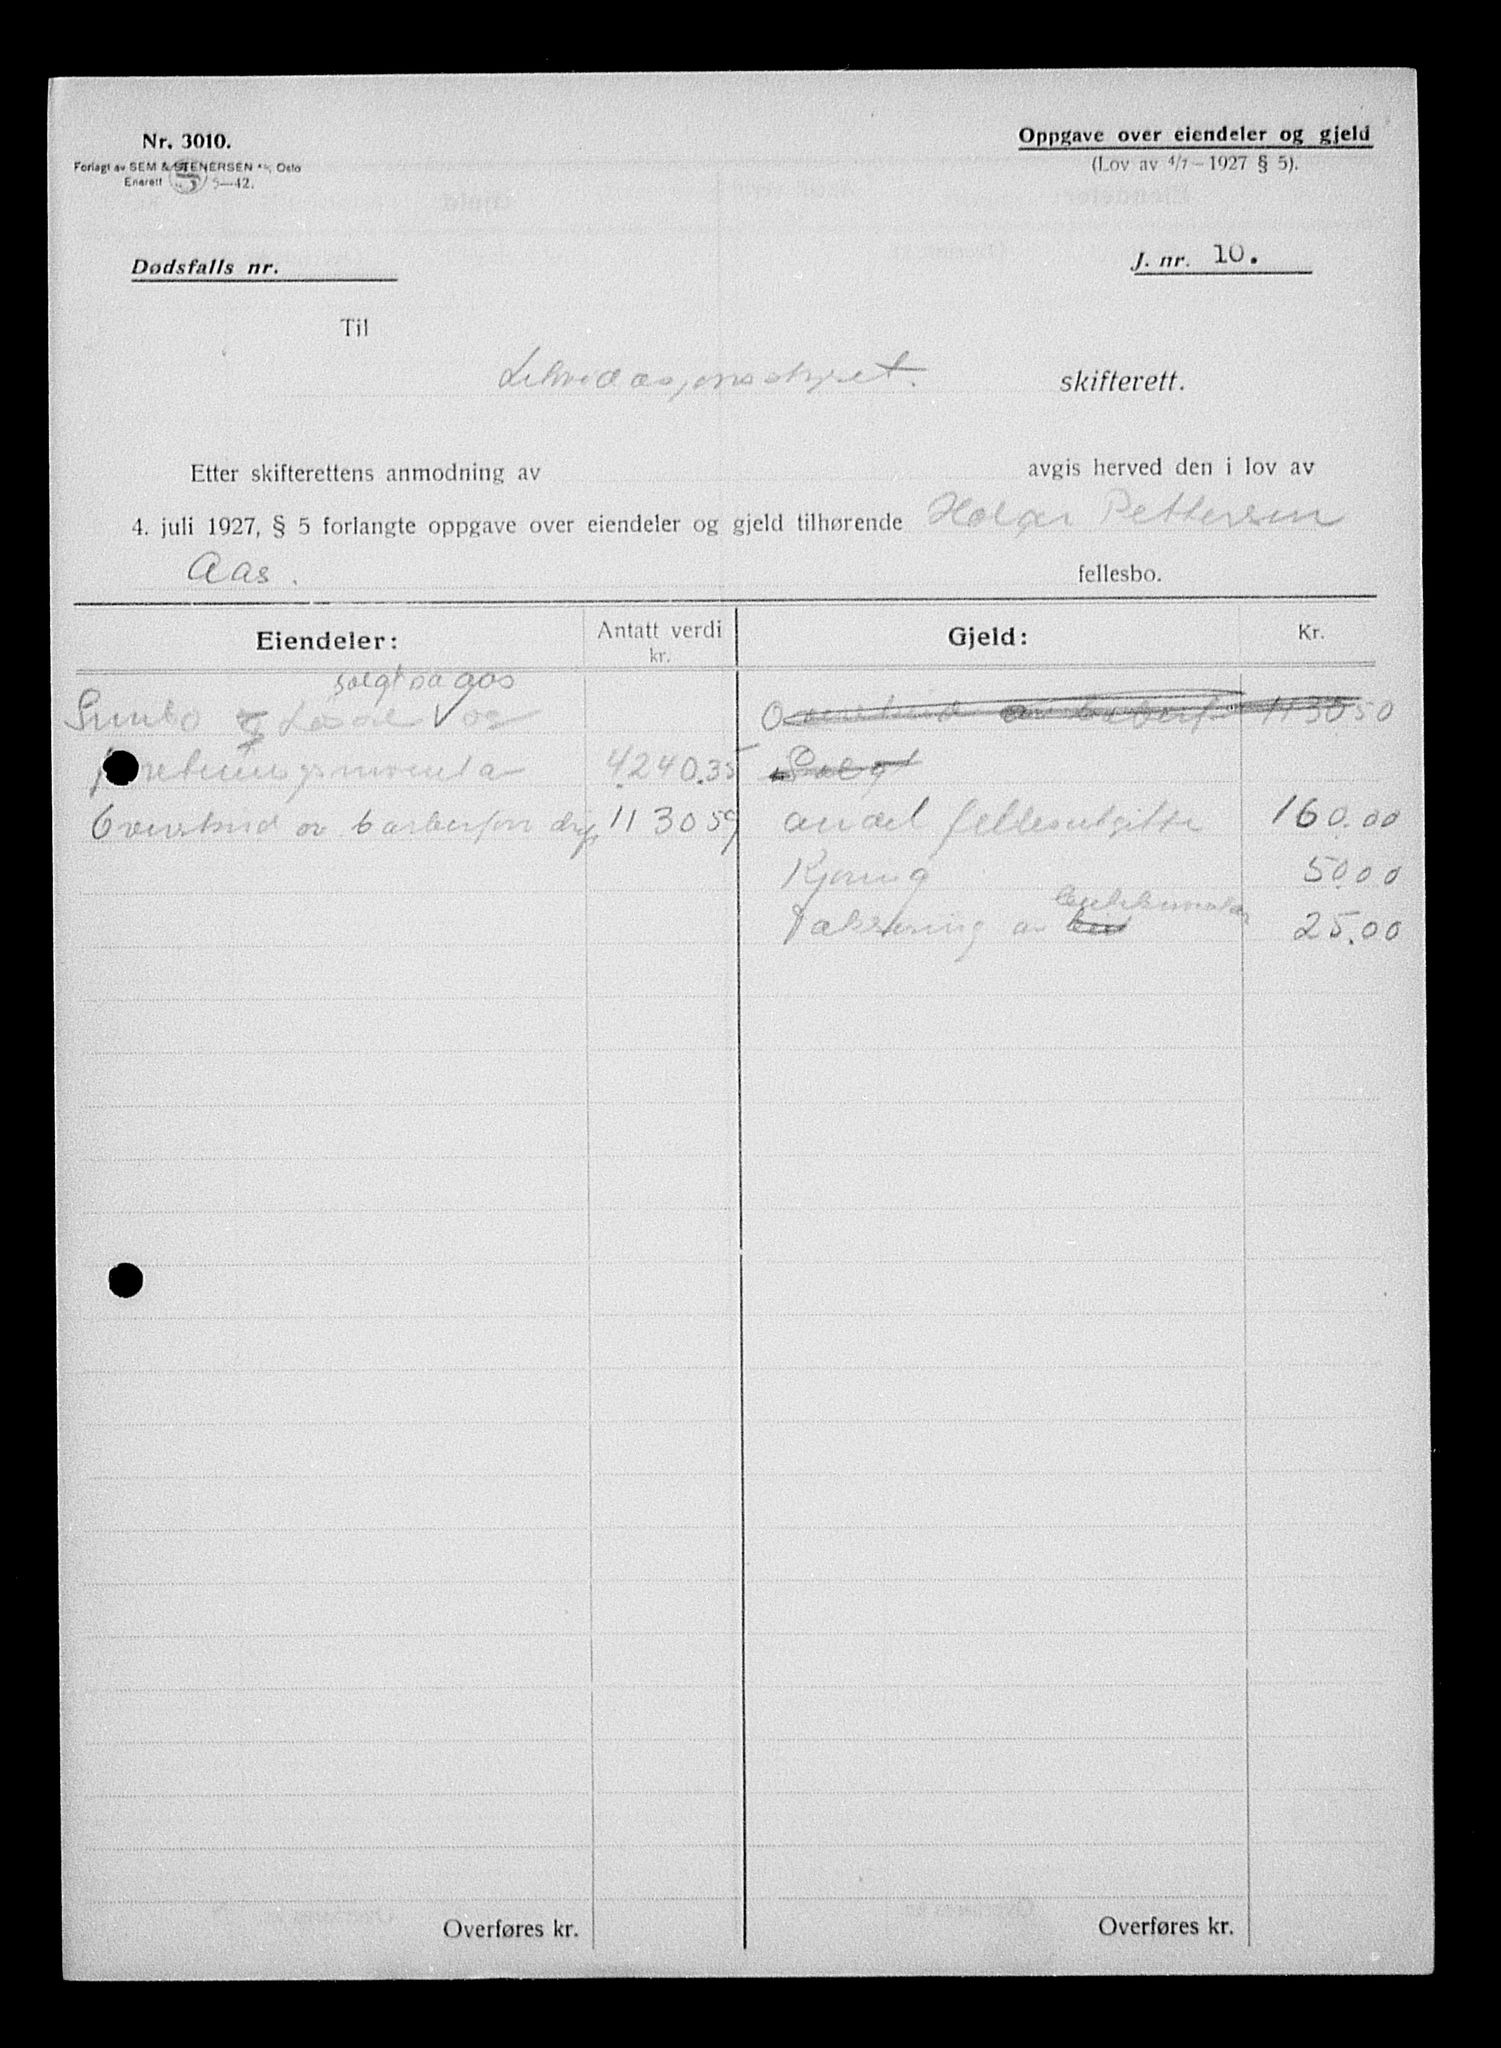 Nr. 3010.
Forlagt av SEM & STENERSEN A/S, Oslo
Enerett 5—42.
Oppgave over eiendeler og gjeld
(Lov av 4/7 – 1927 § 5).
Dødsfalls nr.
J. nr. 10.
Til
Likvidasjonsstyret. skifterett.
Etter skifterettens anmodning av avgis herved den i lov av
4. juli 1927, § 5 forlangte oppgave over eiendeler og gjeld tilhørende Holger Pettersen
Aas. fellesbo.
Eiendeler: Antatt verdi kr. Gjeld: Kr.
solgt pa aas
Innbo og Løsøre og 1130 50
4240.35 Solgt
Overskud av barberforr 1130 50 andel fellesutgifter 160.00
Kjøring 50.00
Taksering av 25.00
Overføres kr. Overføres kr.